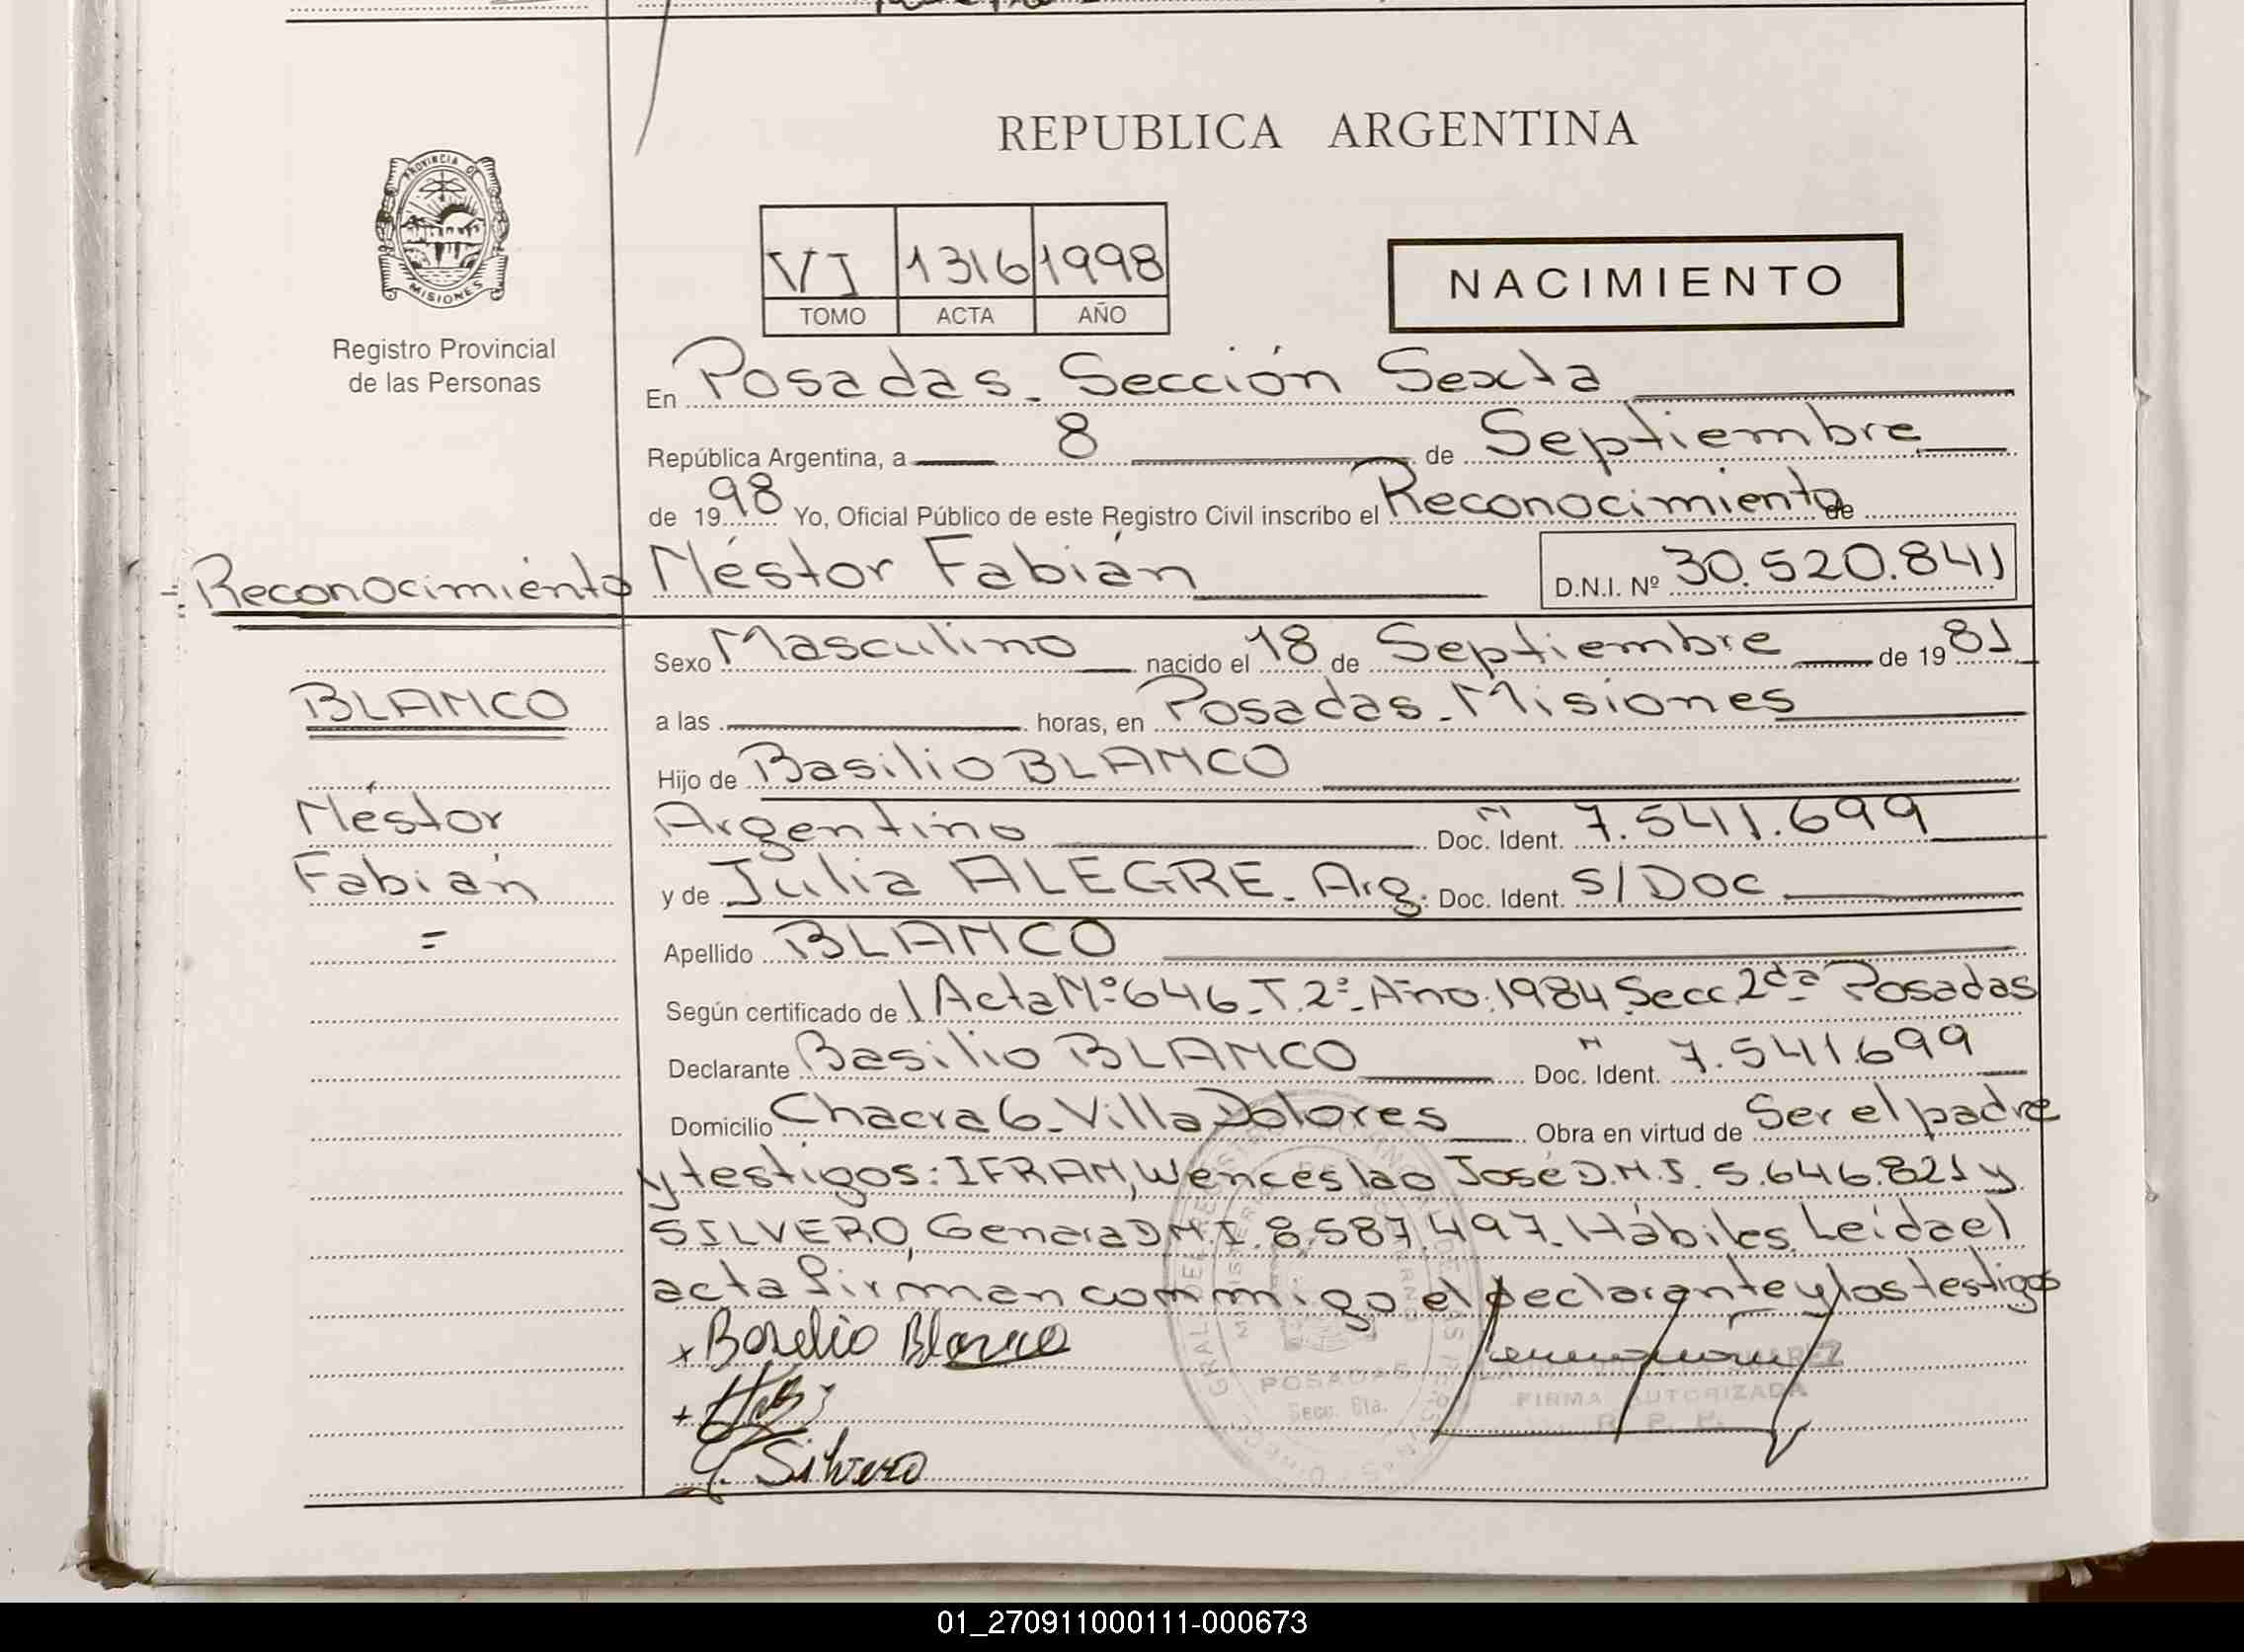 REPUBLICA ARGENTINA
PROVINCIA DE
MISIONES
Registro Provincial
de las Personas
VI 1316 1998
TOMO ACTA AÑO
NACIMIENTO
En Posadas - Sección Sexta
República Argentina, a 8 de Septiembre
de 1998 Yo, Oficial Público de este Registro Civil inscribo el Reconocimiento de
Néstor Fabián D.N.I. Nº 30.520.841
=Reconocimiento
Sexo Masculino nacido el 18 de Septiembre de 1981
BLANCO
a las horas, en Posadas - Misiones
Hijo de Basilio BLANCO
Néstor
Argentino Doc. Ident. M 7.541.699
Fabián
=
y de Julia ALEGRE - Arg. Doc. Ident. S/DOC
Apellido BLANCO
Según certificado de / Acta Nº 646 - T. 2º - Año: 1984 Secc. 2da Posadas
Declarante Basilio BLANCO Doc. Ident. M 7.541.699
Domicilio Chacra 6 - Villa Dolores Obra en virtud de Ser el padre
y testigos: IFRAN, Wenceslao José D.N.I. 5.646.821 y
SILVERO, Genara D.N.I. 8.587.497. Hábiles. Leída el
acta firman conmigo el declarante y los testigos
x Basilio Blanco
+
G. Silvero
POSADAS
Secc. 6ta.
FIRMA AUTORIZADA
R. P. P.
01_270911000111-000673